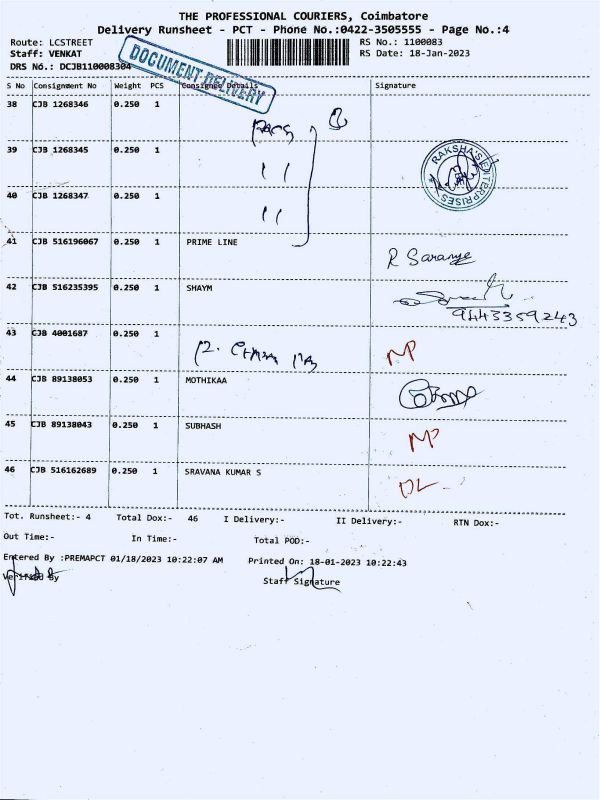 THE PROFESSIONAL COURIERS, Coimbatore
Delivery Runsheet - PCT - Phone No.:0422-3505555 - Page No.:4
Route: LCSTREET RS No.: 1100083
Staff: VENKAT RS Date: 18-Jan-2023
DRS No.: DCJB110008304
DOCUMENT DELIVERY
S No Consignment No Weight PCS Consignee Details Signature
38 CJB 1268346 0.250 1
39 CJB 1268345 0.250 1 ''
RAKSHA'S ENTERPRISES
40 CJB 1268347 0.250 1 ''
41 CJB 516196067 0.250 1 PRIME LINE R Saranya
42 CJB 516235395 0.250 1 SHAYM
9443359243
43 CJB 4001687 0.250 1 MP
44 CJB 89138053 0.250 1 MOTHIKAA
45 CJB 89138043 0.250 1 SUBHASH MP
46 CJB 516162689 0.250 1 SRAVANA KUMAR S DL
Tot. Runsheet:- 4 Total Dox:- 46 I Delivery:- II Delivery:- RTN Dox:-
Out Time:- In Time:- Total POD:-
Entered By :PREMAPCT 01/18/2023 10:22:07 AM Printed On: 18-01-2023 10:22:43
Verified By Staff Signature